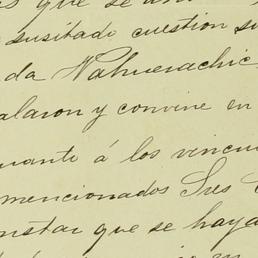 que se
suscitado cuestion su
da Nahuerachic
alaron y convine en
uanto á los vincu
mencionados Sres
nstar que se haya